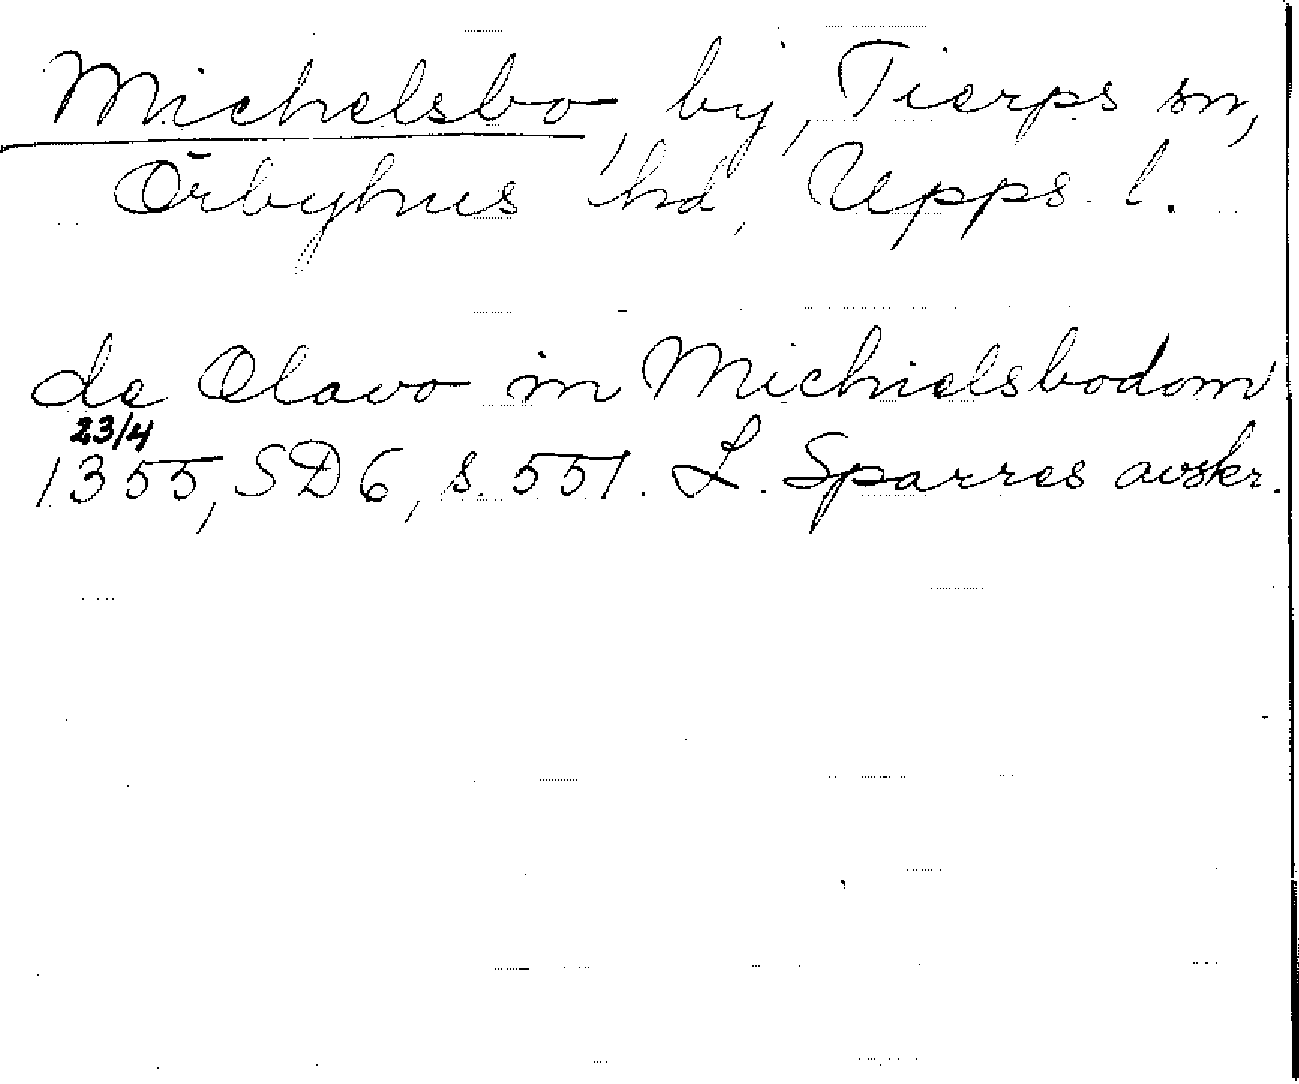 Michelsbo, by, Tierps sn,
Örbyhus hd, Upps. l.
de Olavo in Michielsbodom
23/4
1355, SD6, s. 551. L. Sparres avskr.